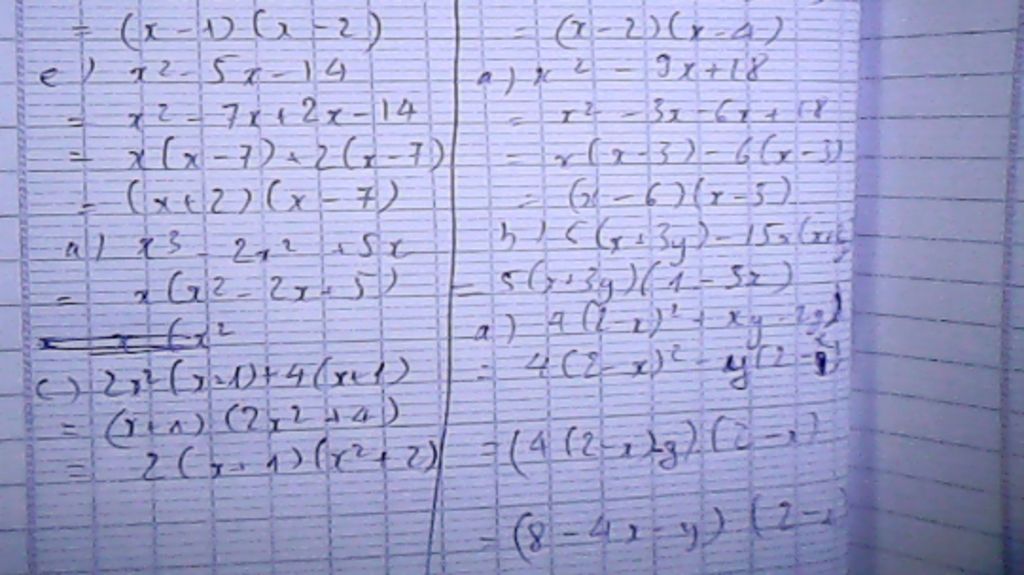 = (x - 1) (x - 2)
e) x² - 5x - 14
= x² - 7x + 2x - 14
= x(x - 7) + 2(x - 7)
= (x + 2) (x - 7)
a) x³ - 2x² + 5x
= x(x² - 2x + 5)
c) 2x²(x+1) + 4(x+1)
= (x+1) (2x² + 4)
= 2(x+1)(x² + 2)
= (x - 2)(x - 4)
a) x² - 9x + 18
= x² - 3x - 6x + 18
= x(x - 3) - 6(x - 3)
= (x - 6)(x - 3)
b) 5(x + 3y) - 15x(x+3y
= 5(x + 3y)(1 - 3x)
a) 4(2 - x)² + xy - 2y
= 4(2 - x)² - y(2 -
= (4(2 - x) - y)(2 - x)
= (8 - 4x - y)(2 - x